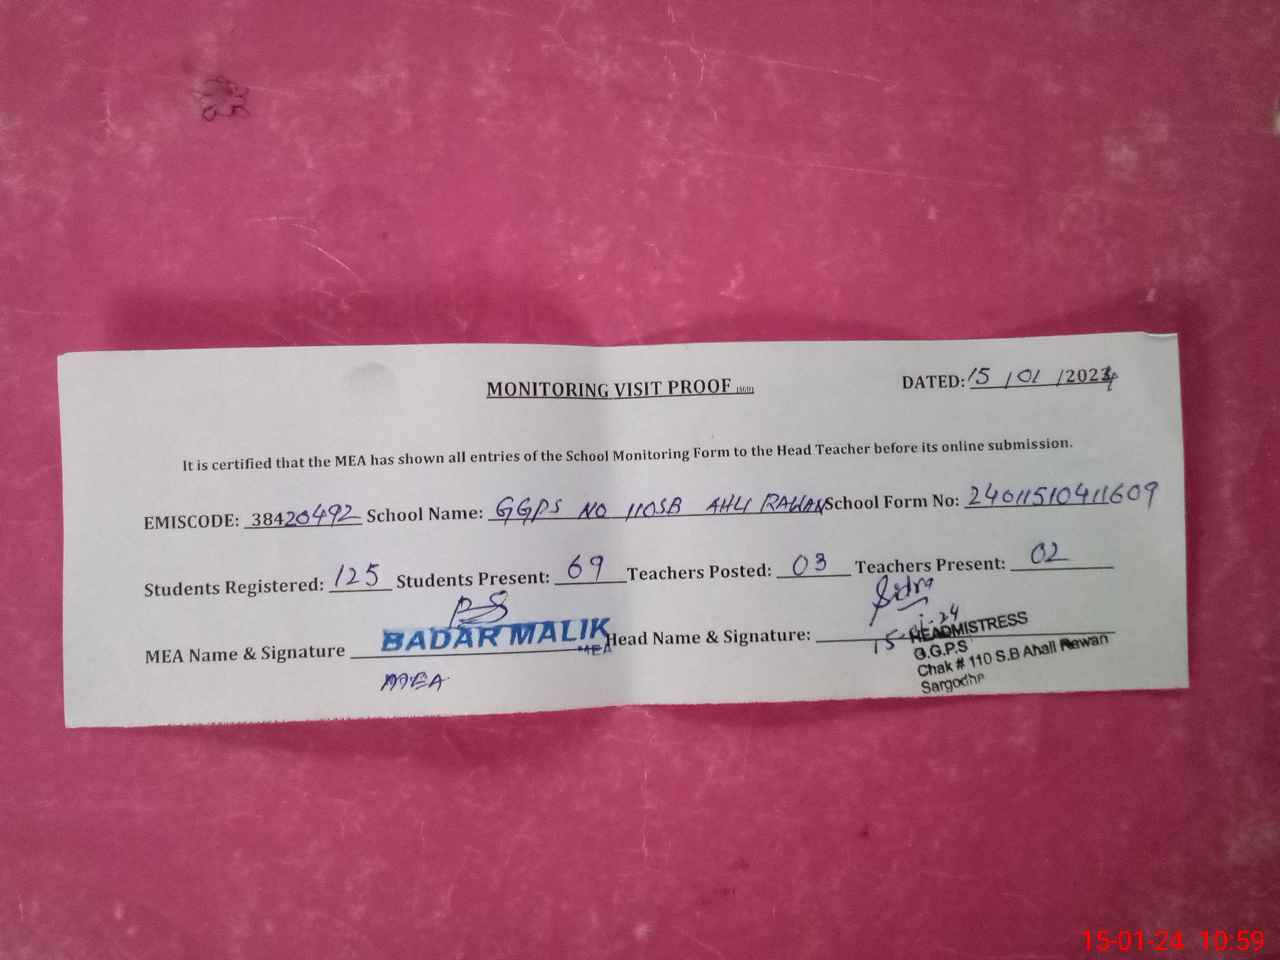 MONITORING VISIT PROOF
DATED: 15 / 01 / 2024
It is certified that the MEA has shown all entries of the School Monitoring Form to the Head Teacher before its online submission.
EMISCODE: 38420492 School Name: GGPS NO 110SB AHLI RAWAN School Form No: 24011510411609
Students Registered: 125 Students Present: 69 Teachers Posted: 03 Teachers Present: 02
MEA Name & Signature BADAR MALIK Head Name & Signature:
MEA
MEA
15-01-24
HEADMISTRESS
G.G.P.S
Chak # 110 S.B Ahall Rewan
Sargodha
15-01-24 10:59